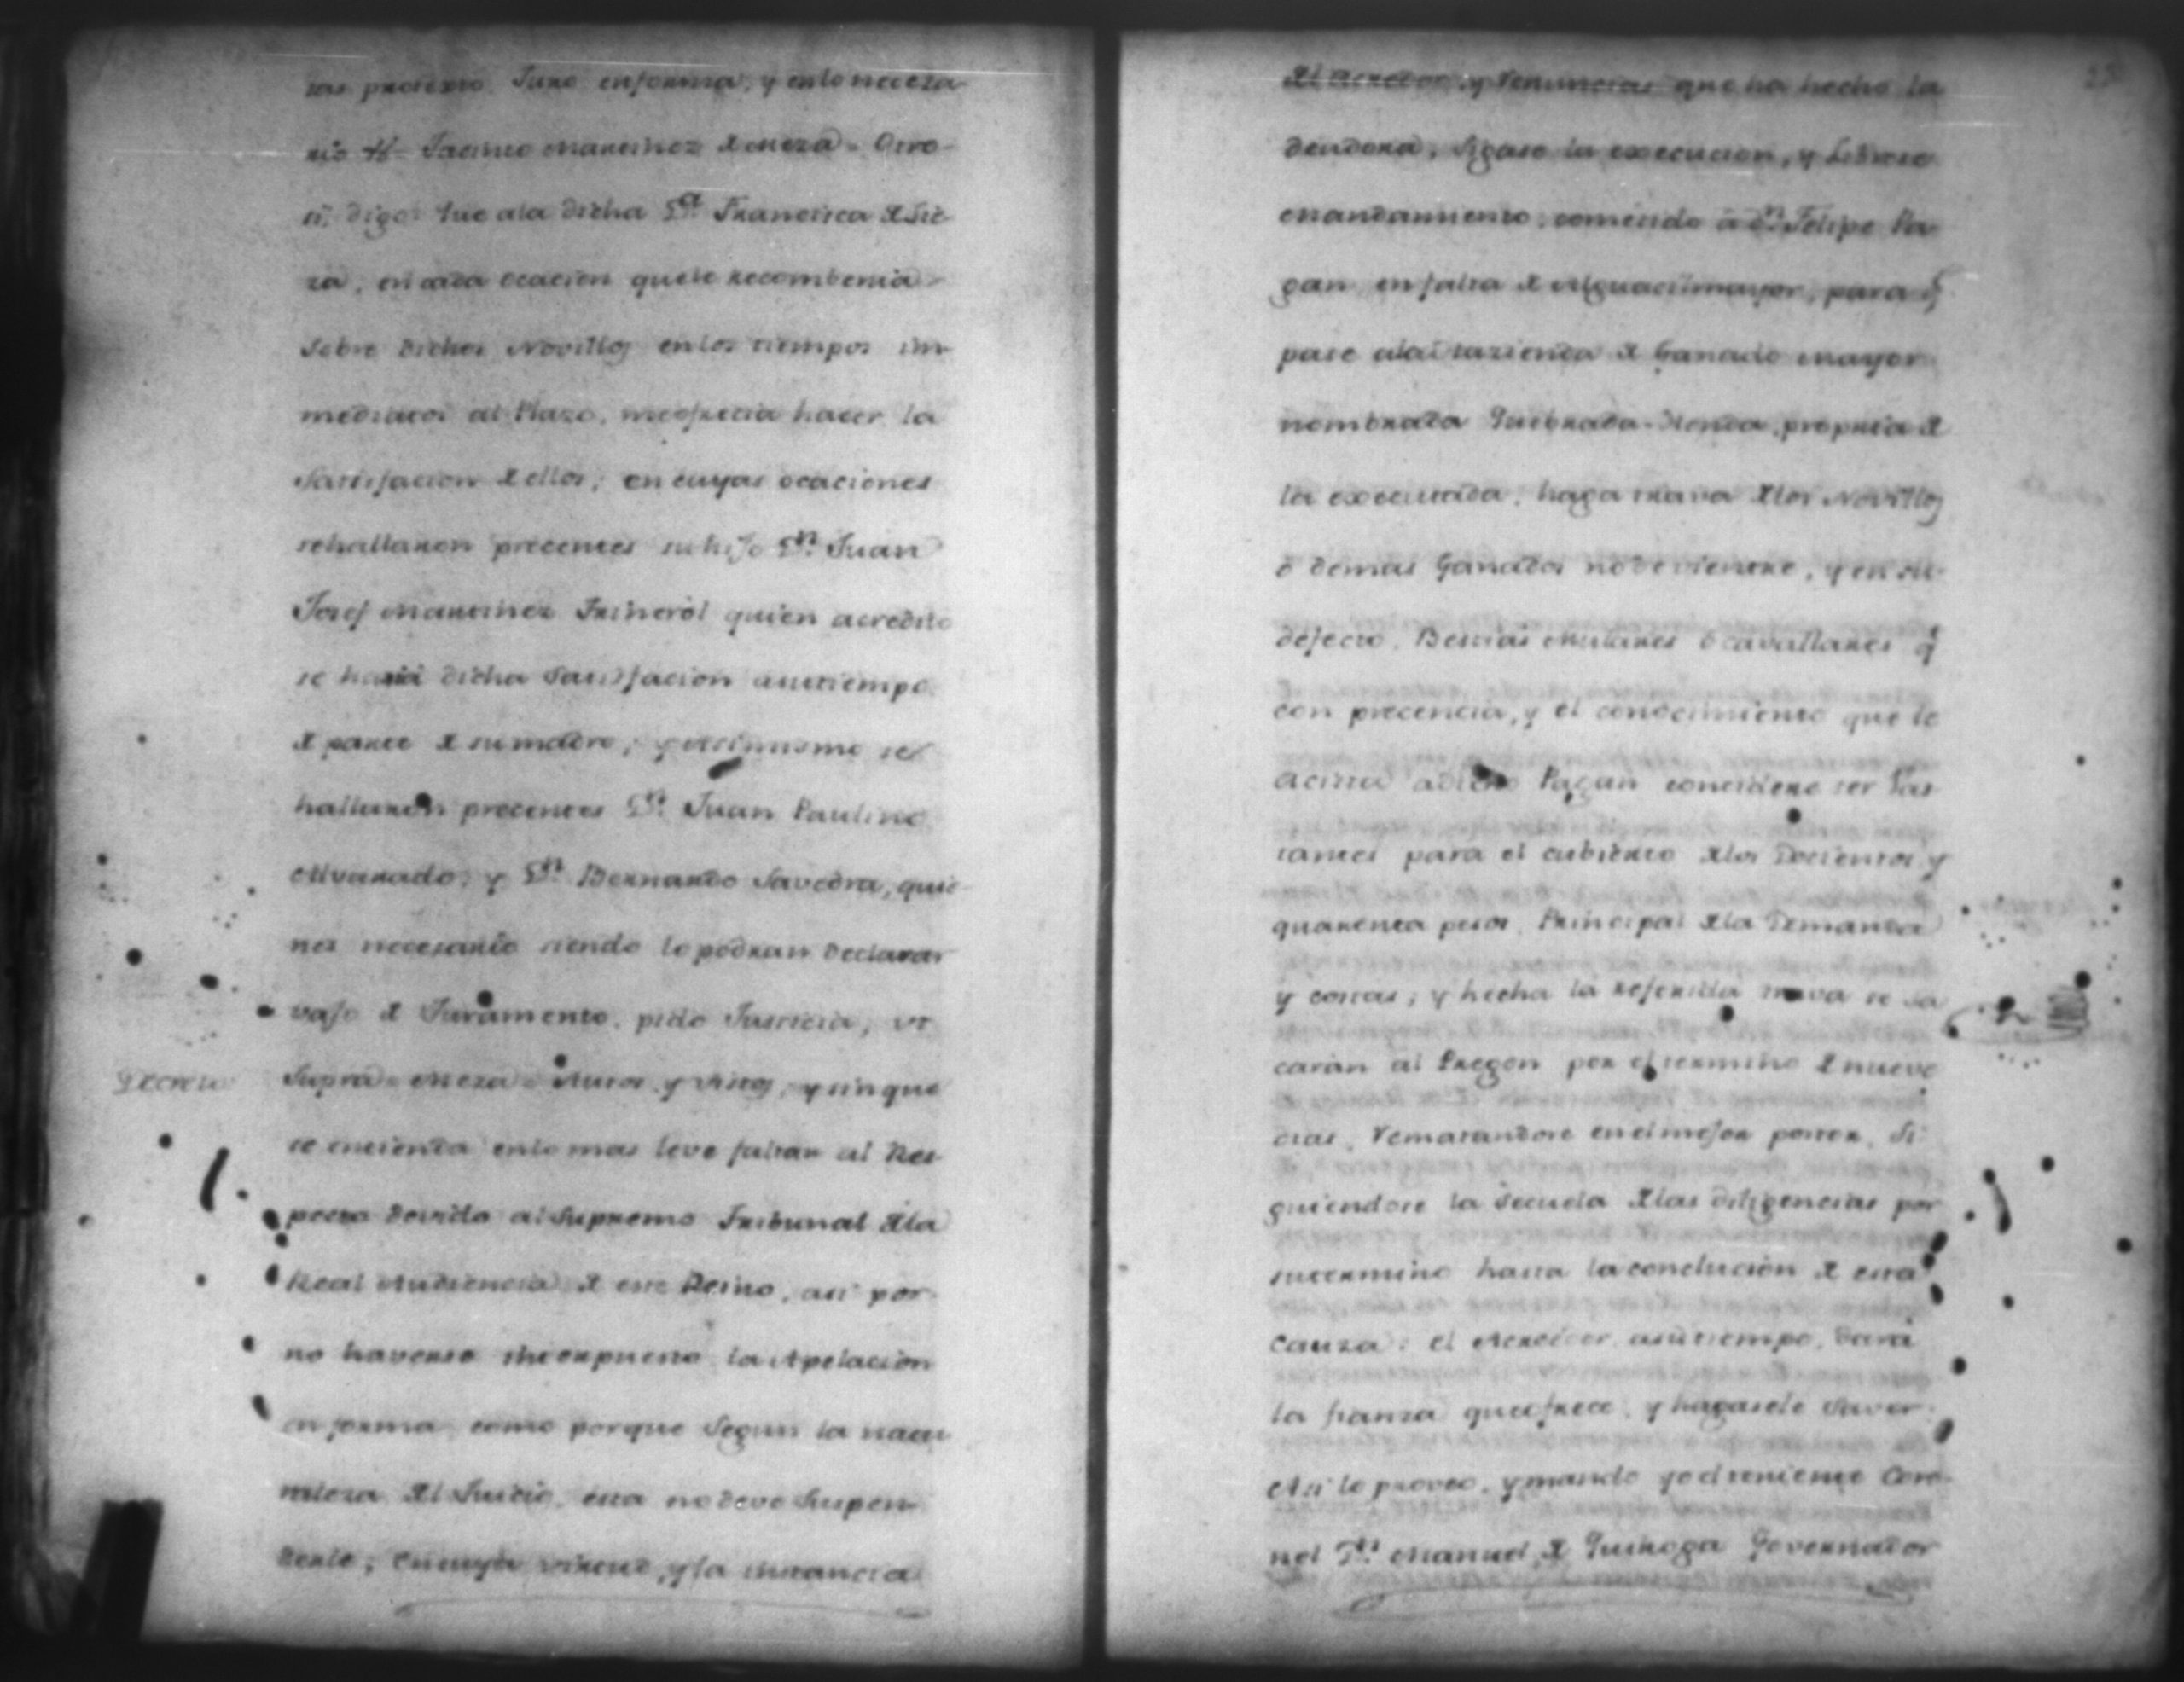 tas protexto. Juro enforma, y enlo neceza-
rio &- Jacinto Martinez de Meza = Otro-
si, digo: Que ala dicha Dª Francisca de Sie-
za, en cada ocacion quele recombenia
sobre dichos Novillos enlos tiempos im-
mediatos al Plazo, meofrecia hacer la
Satisfacion de ellos; en cuyas ocaciones
sehallaron precentes su hijo Dn Juan
Josef Martinez Frineròl quien acredito
se haria dicha Satisfacion asutiempo
de parte de sumadre; y assimismo se
hallaron precentes Dn Juan Paulino
Alvarado; y Dn Bernardo Savedra, quie-
nes necesario siendo lo podran Declarar
vajo de Juramento, pido Justicia, vt
Decreto
Supra = Meza = Autos y Vistos, y sin que
se entienda enlo mas leve faltar al Res-
pecto devido al Supremo Tribunal dela
Real Audiencia de este Reino, asi por
no haverse interpuesto la Apelacion
en forma, como porque Segun la natu-
raleza del Juicio, esta no deve Suspen-
derlo; Encuya virtud, y la instancia
23
del acreedor, y Renuncias que ha hecho la
deudora, Sigase la execucion, y Librese
Mandamiento, cometido à dn Felipe Pa-
gan en falta de Alguacilmayor, para q
pase ala Hazienda de Ganado mayor
nombrada Quebrada-Honda, propria de
la executada, haga trava delos Novillos
ò demas Ganados no de vientre, y en su
defecto, Bestias Mulares ò cavallares q
con precencia, y el conocimiento que le
acista adicho Pagan concidere ser Vas-
tantes para el cubierto delos Docientos y
quarenta pesos, Principal dela Demanda
y costas; y hecha la referida trava se sa
caran al Pregon por el termino de nueve
dias, Rematandose enelmejor postor, Si-
guiendose la Secuela delas diligencias por
sutermino hasta la conclucion de esta
Cauza: el Acreedor, asutiempo, Dara
la fianza queofrece, y hagasele Saver.
Asi lo proveo, y mando yo el teniente Coro-
nel Dn Manuel de Quiroga Governador